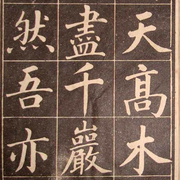 天高木
盡千巖
然吾亦